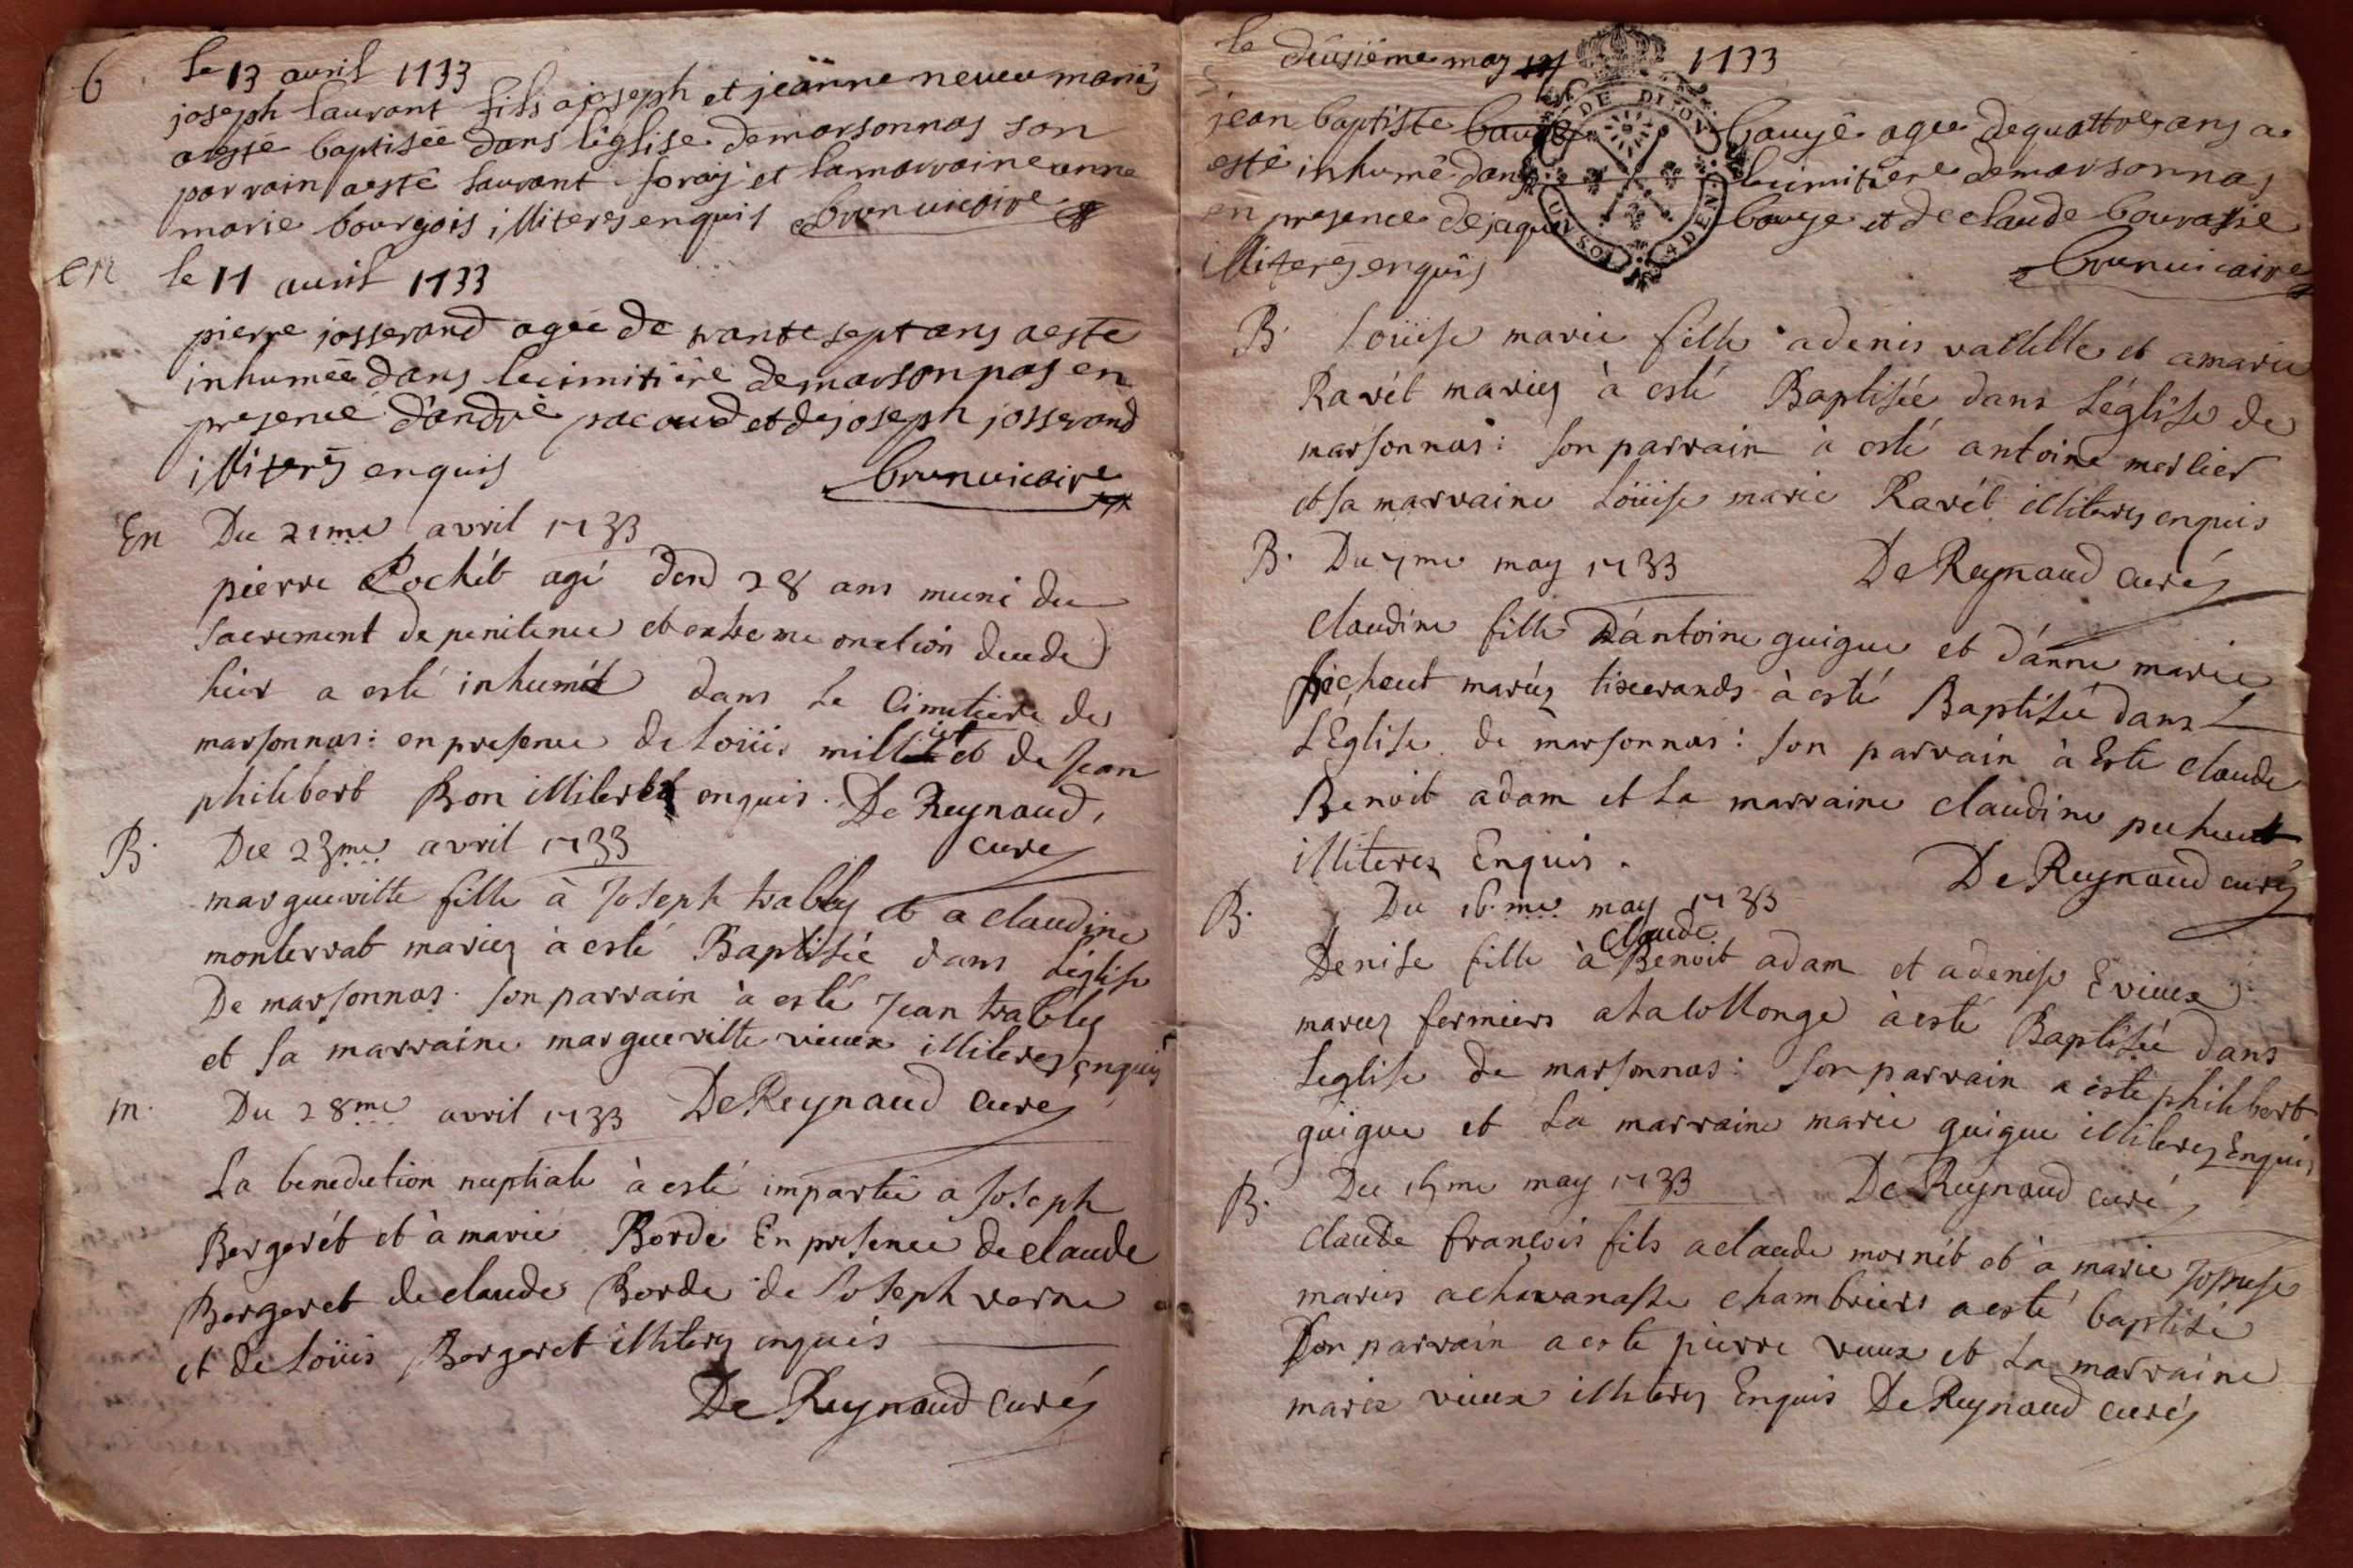 6
le 13 avril 1733
joseph laurant fils a joseph et jeanne neveu mariés
aesté baptisée dans léglise demarsonnas son
parrain aesté laurant et lamarraine anne
marie bourgois illiteres enquis brun vicaire
en le 17 avril 1733
pierre josserand agée de trante sept ans aesté
inhumée dans lecimitière demarsonnas en
presence d'andré pacoud et de joseph josserand
illiterés enquis brun vicaire
En Du 21me avril 1733
pierre Pochét agé denv 28 ans muni du
Sacrement de penitence et extreme onction decede
hier a esté inhumé dans le Cimetiere de
marsonnas: en presence de Loüis millet et de Jean
philibert Bon illiteres enquis. De Reynaud,
curé
B. Du 23me avril 1733
margueritte fille à Joseph trabley et a claudine
monterrat mariez à esté Baptisée dans L'église
De marsonnas. son parrain à esté Jean trabley
et sa marraine margueritte vieux illiterez enquis
m. Du 28me avril 1733 De Reynaud curé
La benediction nuptiale à esté impartie a Joseph
Bergerét et à marie Borde En presence de claude
Bergeret de claude Borde de Joseph verne
et de Loüis Bergeret illiterez enquis
De Reynaud curé
le deusiéme may 1733
jean baptiste bauyé bouyé agée dequattre ans a
esté inhumé dans lecimitiere demarsonnas
en presence de jaque bouye et de claude bourassie
illiterés enquis
brun vicaire
DE DIJON
B. Loüise marie fille a denis vallette et a marie
Ravét mariez à esté Baptisée dans L'église de
marsonnas: son parrain à esté antoine merlier
et sa marraine Loüise marie Ravét illiterez enquis
B. Du 7me may 1733 De Reynaud curé
Claudine fille D'antoine guigue et d'anne marie
pécheut mariez tixerands à esté Baptisée dans
L'Eglise de marsonnas: son parrain à Esté claude
Benoit adam et la marraine claudine pecheut
illiterez Enquis.
De Reynaud curé
B. Du 16.me may 1733
claude
Denise fille à Benoit adam et a denise Evieux
mariez fermiers a la collonge à esté Baptisée dans
L'eglise de marsonnas: son parrain a esté philibert
guigue et la marraine marie guigue illiterez Enquis
B. Du may 1733 De Reynaud curé
Claude francois fils a claude mornét et à marie
mariés a chavanasse chambriers a esté baptisé
Son parrain a esté pierre vieux et la marraine
marie vieux illiterez Enquis De Reynaud curé